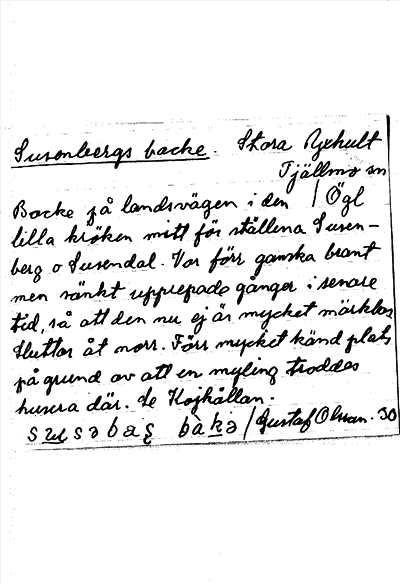 Susenbergs backe. Stora Ryckult
Tjällmo sn
Backe på landsvägen i den / Ögl
lilla kröken mitt för ställena Susen-
berg o Susendal. Var förr ganska brant
men sänkt upprepade gånger i senare
tid, så att den nu ej är mycket märkbar
Sluttar åt norr. Förr mycket känd plats
på grund av att en myling troddes
husera där. Se Kojkällan.
bàkə / Gustaf Olsson. 30